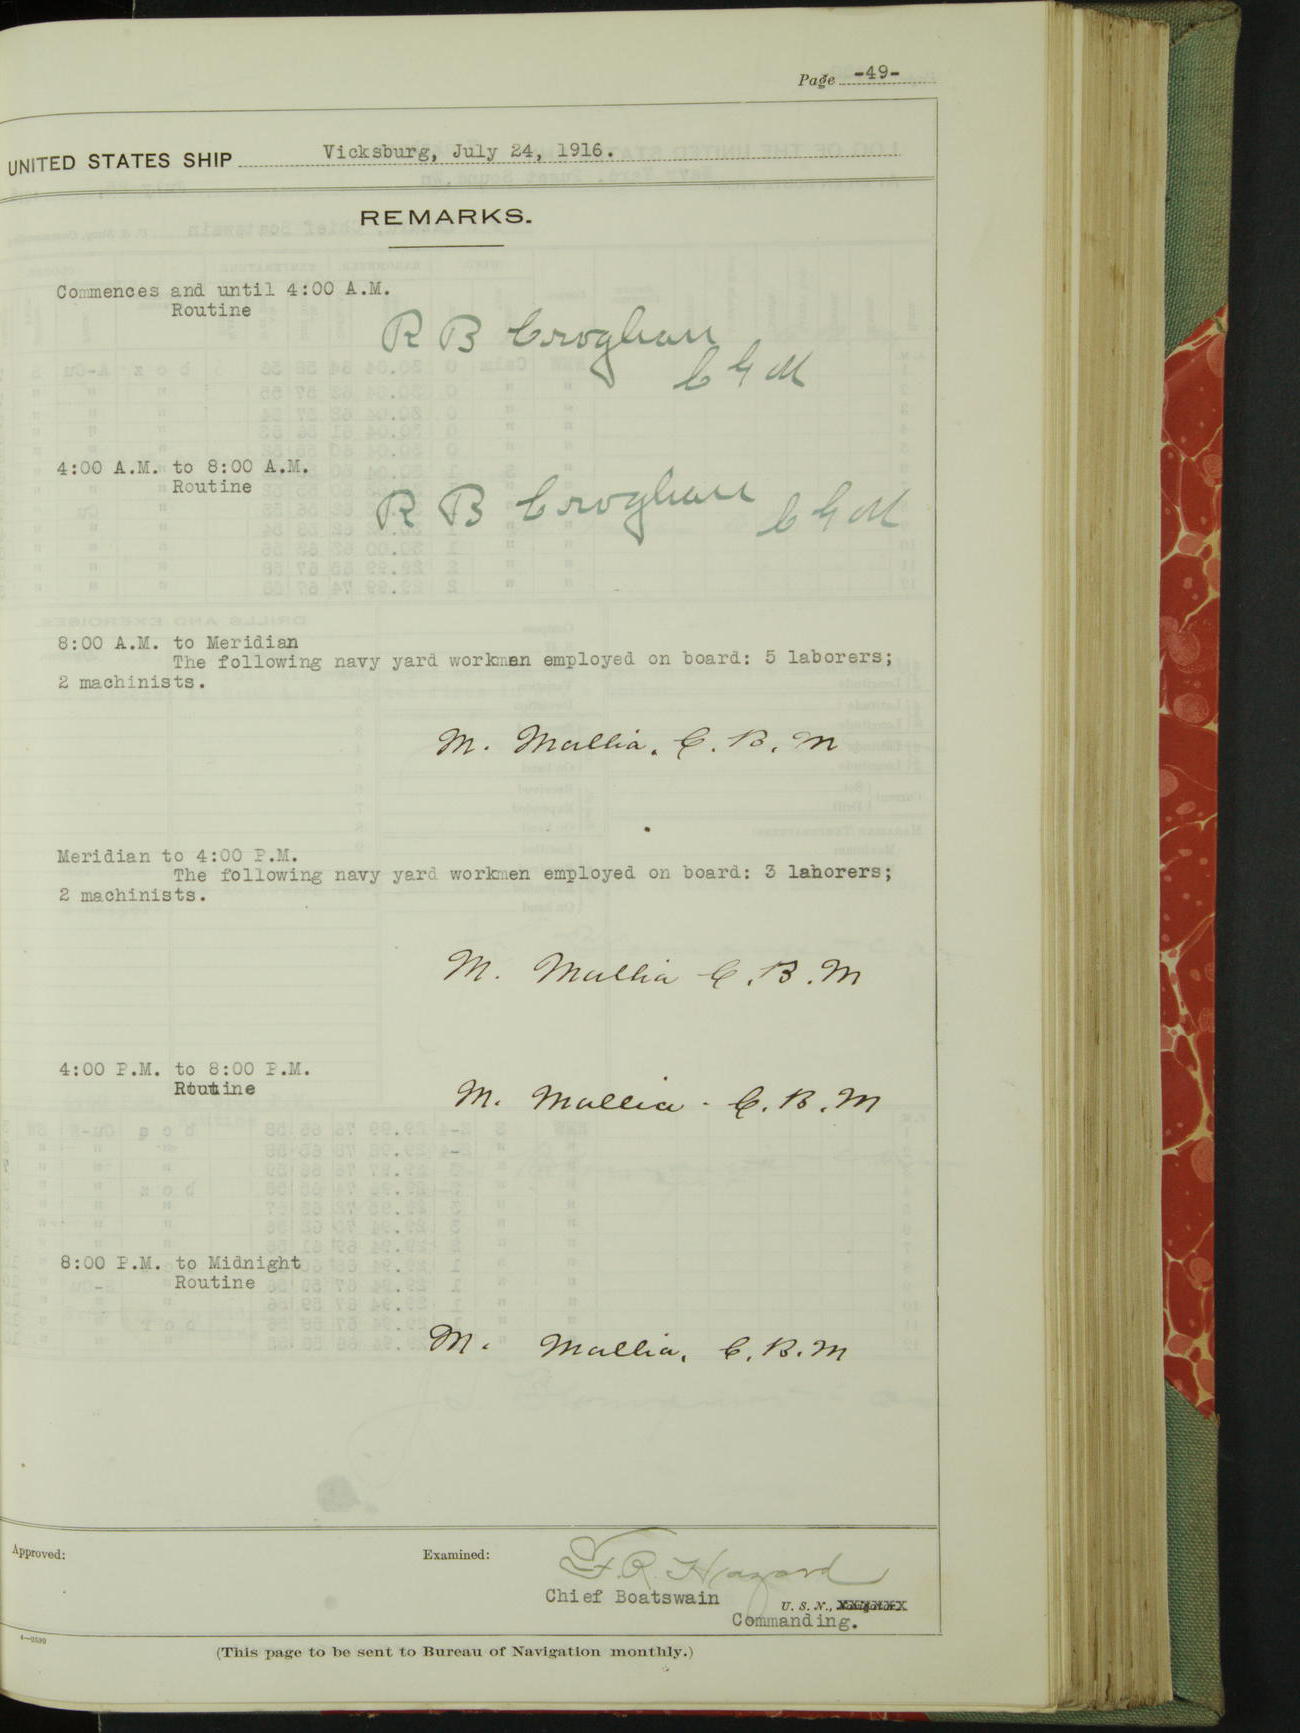 Page -49-
UNITED STATES SHIP Vicksburg, July 24, 1916.
REMARKS.
Commences and until 4:00 A.M.
Routine
R B Croghan
C G M
4:00 A.M. to 8:00 A.M.
Routine
R B Croghan C G M
8:00 A.M. to Meridian
The following navy yard workmen employed on board: 5 laborers;
2 machinists.
M. Mallia, C. B. M
Meridian to 4:00 P.M.
The following navy yard workmen employed on board: 3 lahorers;
2 machinists.
M. Mallia C. B. M
4:00 P.M. to 8:00 P.M.
Routine
M. Mallia - C. B. M
8:00 P.M. to Midnight
Routine
M. Mallia, C. B. M
Approved:
Examined:
F. R. Hazard
Chief Boatswain
U. S. N., Navigator.
Commanding.
(This page to be sent to Bureau of Navigation monthly.)